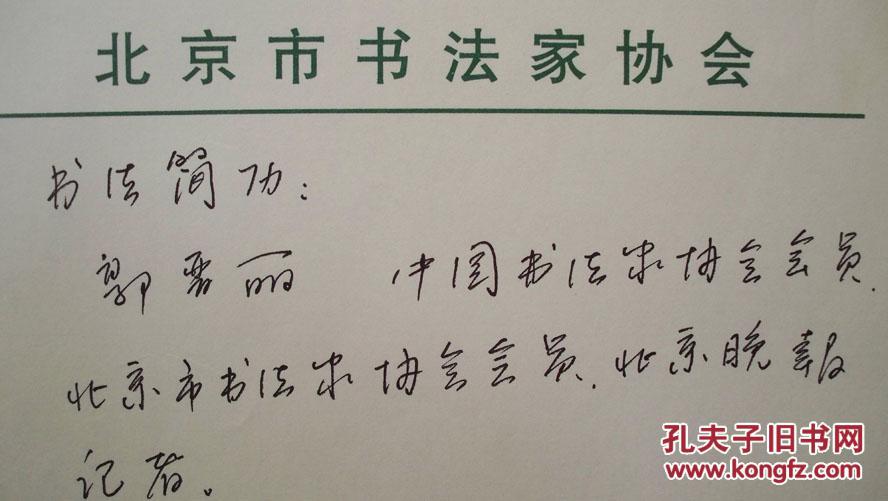 北京市书法家协会
书法简历:
郭雪丽 中国书法家协会会员.
北京市书法家协会会员.北京晚报
记者。
孔夫子旧书网
www.kongfz.com